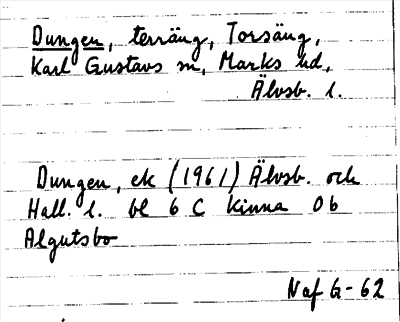 Dungen, terräng, Torsäng,
Karl Gustavs sn, Marks hd,
Älvsb. l.
Dungen, ek (1961) Älvsb. och
Hall. l. bl 6 C Kinna Ob
Algutsbo
Naf G-62